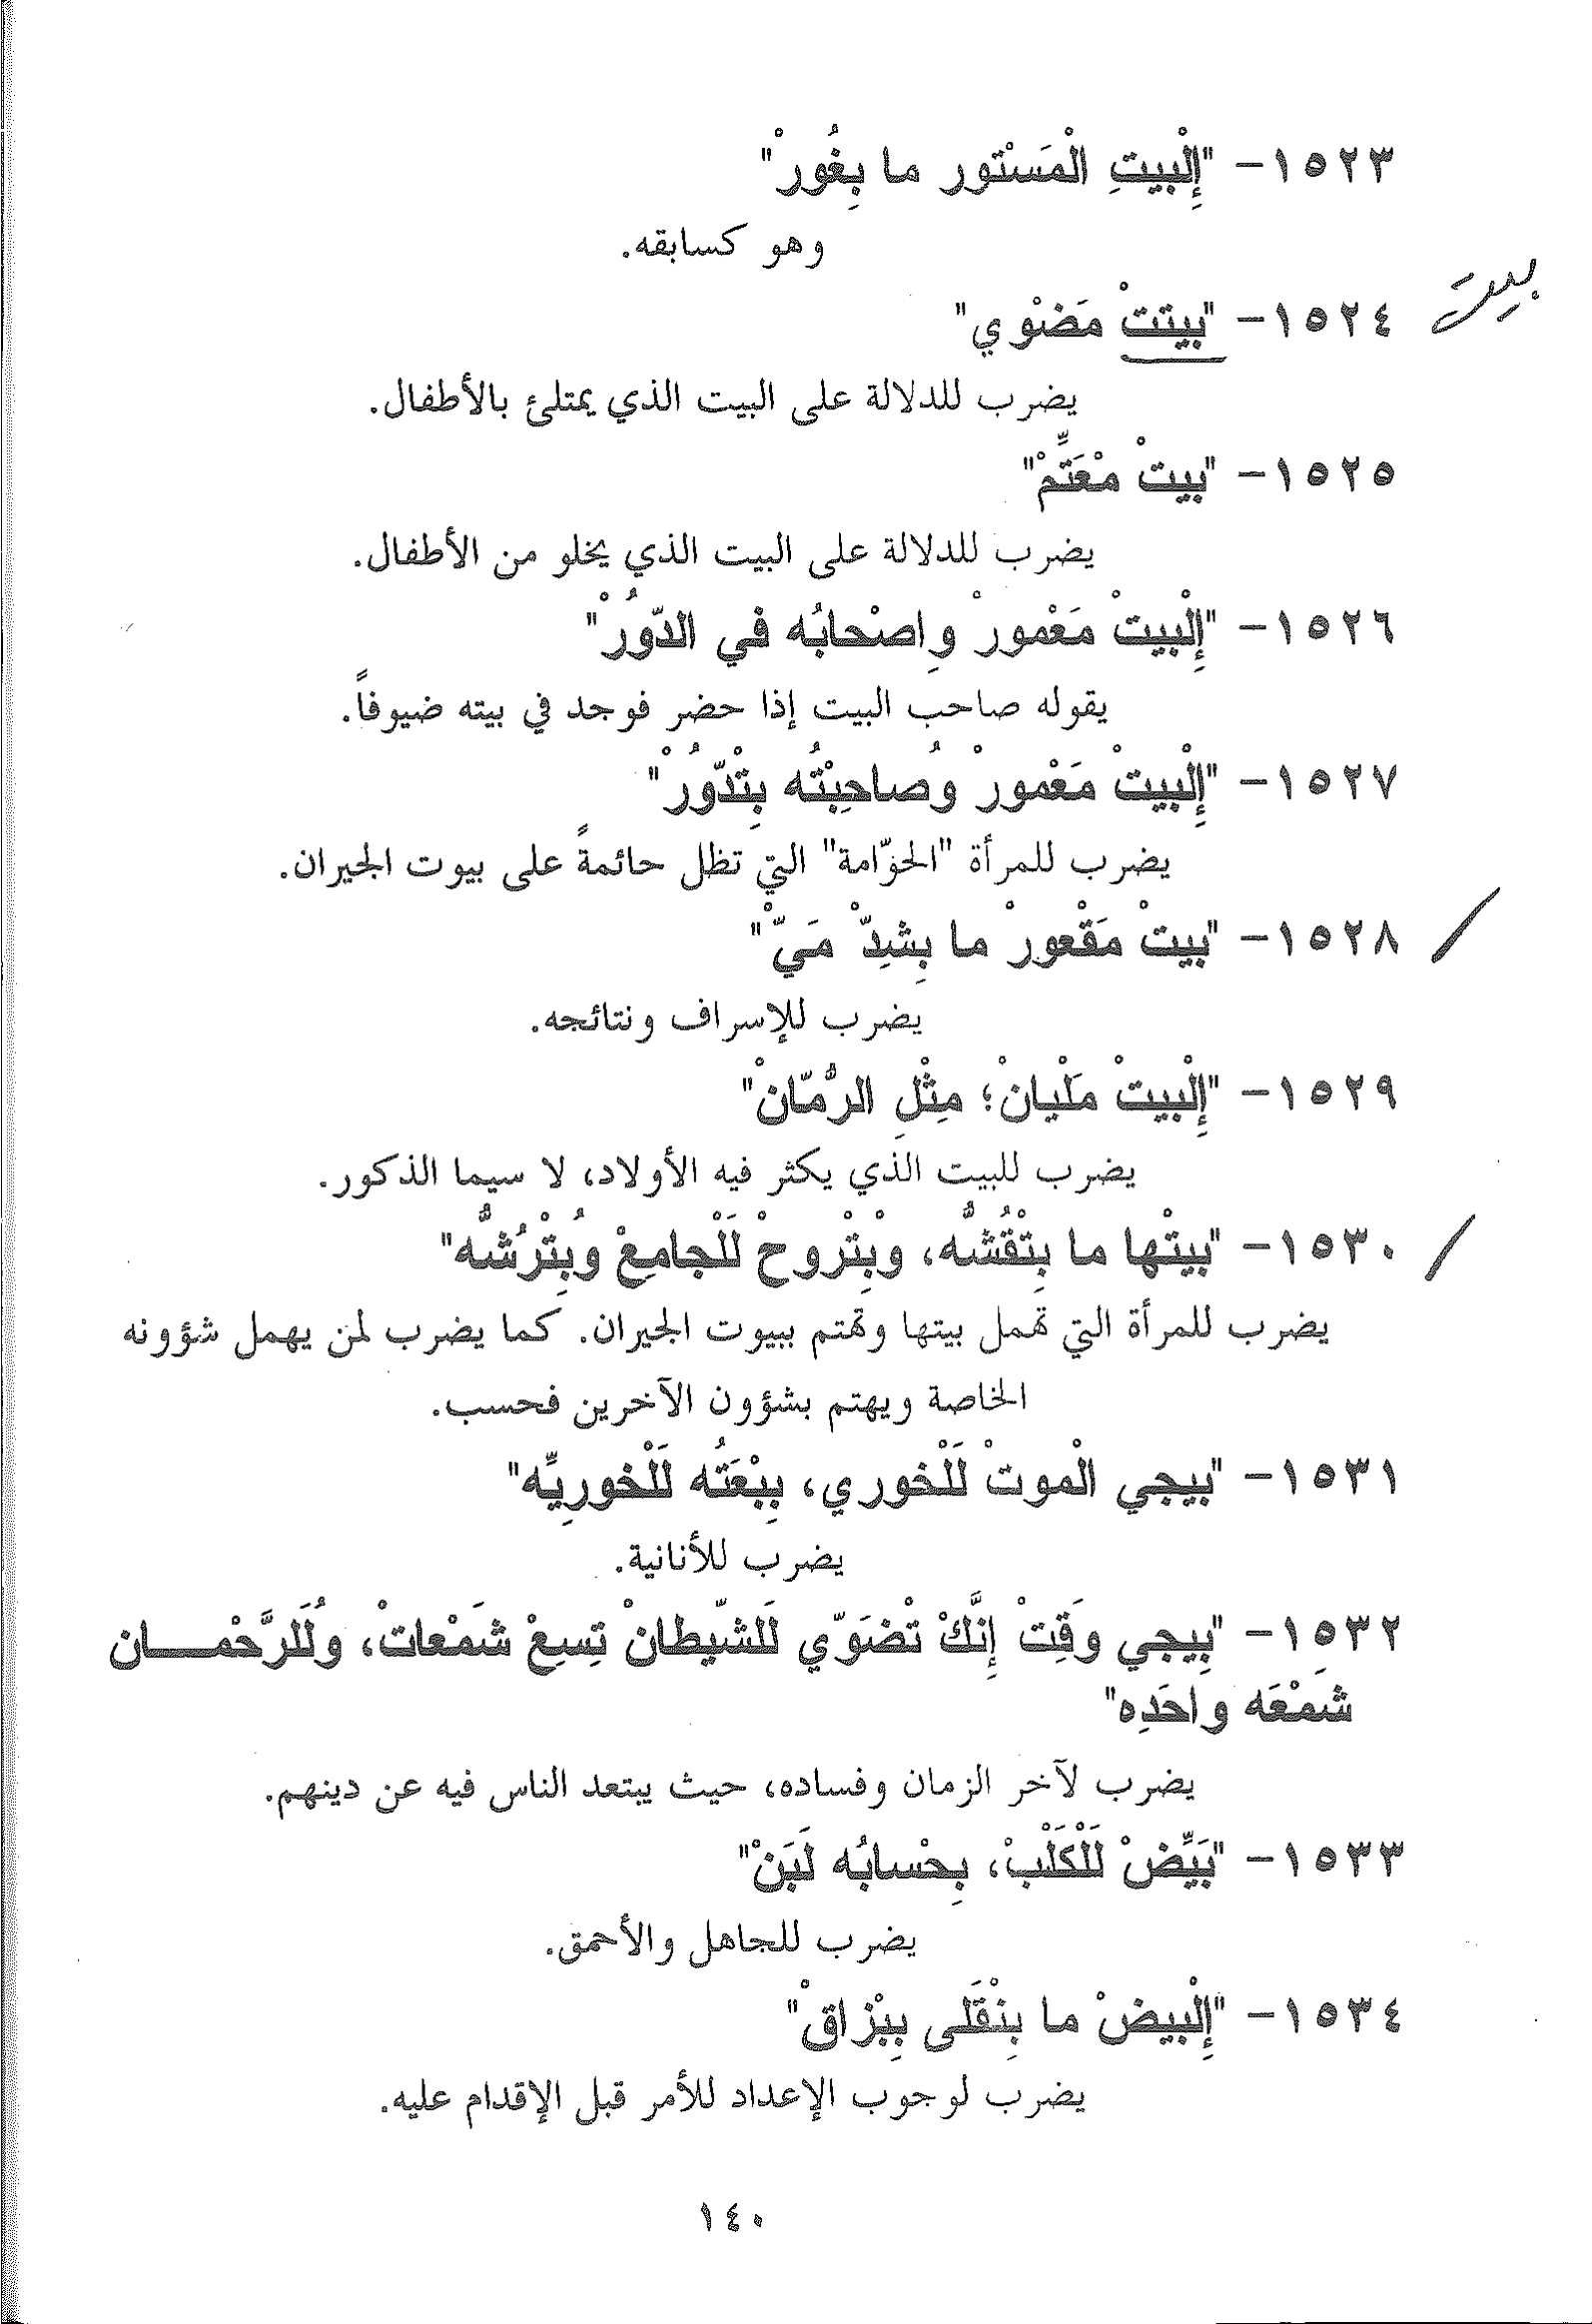 ١٥٢٣- "إِلْبيتِ الْمَسْتور ما بِغُورْ"
وهو كسابقه.
بيت
١٥٢٤- "بيتتْ مَضْوي"
يضرب للدلالة على البيت الذي يمتلئ بالأطفال.
١٥٢٥- "بيتْ مْعَتِّمْ"
يضرب للدلالة على البيت الذي يخلو من الأطفال.
١٥٢٦- "إِلْبيتْ مَعْمورْ وِاصْحابُه في الدّوُرْ"
يقوله صاحب البيت إذا حضر فوجد في بيته ضيوفاً.
١٥٢٧- "إِلْبيتْ مَعْمورْ وُصاحِبْتُه بِتْدّوُرْ"
يضرب للمرأة "الحوّامة" التي تظل حائمةً على بيوت الجيران.
١٥٢٨- "بيتْ مَقْعورْ ما بِشِدّْ مَيّْ"
يضرب للإسراف ونتائجه.
١٥٢٩- "إِلْبيتْ مَلْيانْ؛ مِثْلِ الرُّمّانْ"
يضرب للبيت الذي يكثر فيه الأولاد، لا سيما الذكور.
١٥٣٠- "بيتْها ما بِتْقُشُّه، وْبِتْروحْ لَلْجامِعْ وبُتْرُشُّه"
يضرب للمرأة التي تهمل بيتها وتهتم ببيوت الجيران. كما يضرب لمن يهمل شؤونه
الخاصة ويهتم بشؤون الآخرين فحسب.
١٥٣١- "بيجي الْموتْ لَلْخوري، بِبْعَتُه لَلْخورِيِّه"
يضرب للأنانية.
١٥٣٢- "بِيجي وقَتِْ إِنَّكْ تْضَوّي لَلشّيطانْ تِسِعْ شَمْعاتْ، ولَُلرَّحْمـــــان
شَمْعَه واحَدِه"
يضرب لآخر الزمان وفساده، حيث يبتعد الناس فيه عن دينهم.
١٥٣٣- "بَيِّضْ لَلْكَلْبْ، بِحْسابُه لَبَنْ"
يضرب للجاهل والأحمق.
١٥٣٤- "إِلْبيضْ ما بِنْقَلى بِبْزاقْ"
يضرب لوجوب الإعداد للأمر قبل الإقدام عليه.
١٤٠